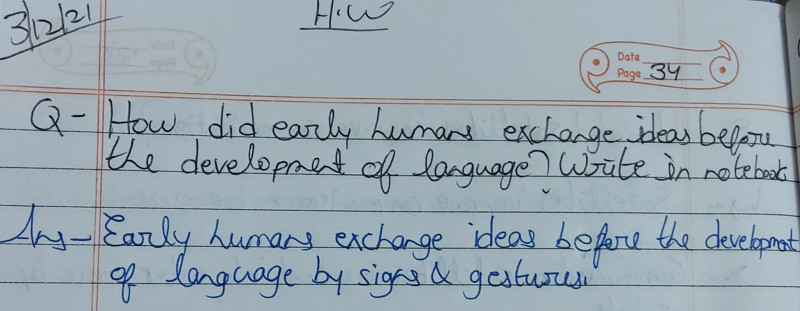 3/12/21
H.W
Date
Page 34
Q - How did early humans exchange ideas before
the development of language? Write in notebook
Ans - Early humans exchange ideas before the development
of language by signs & gestures.